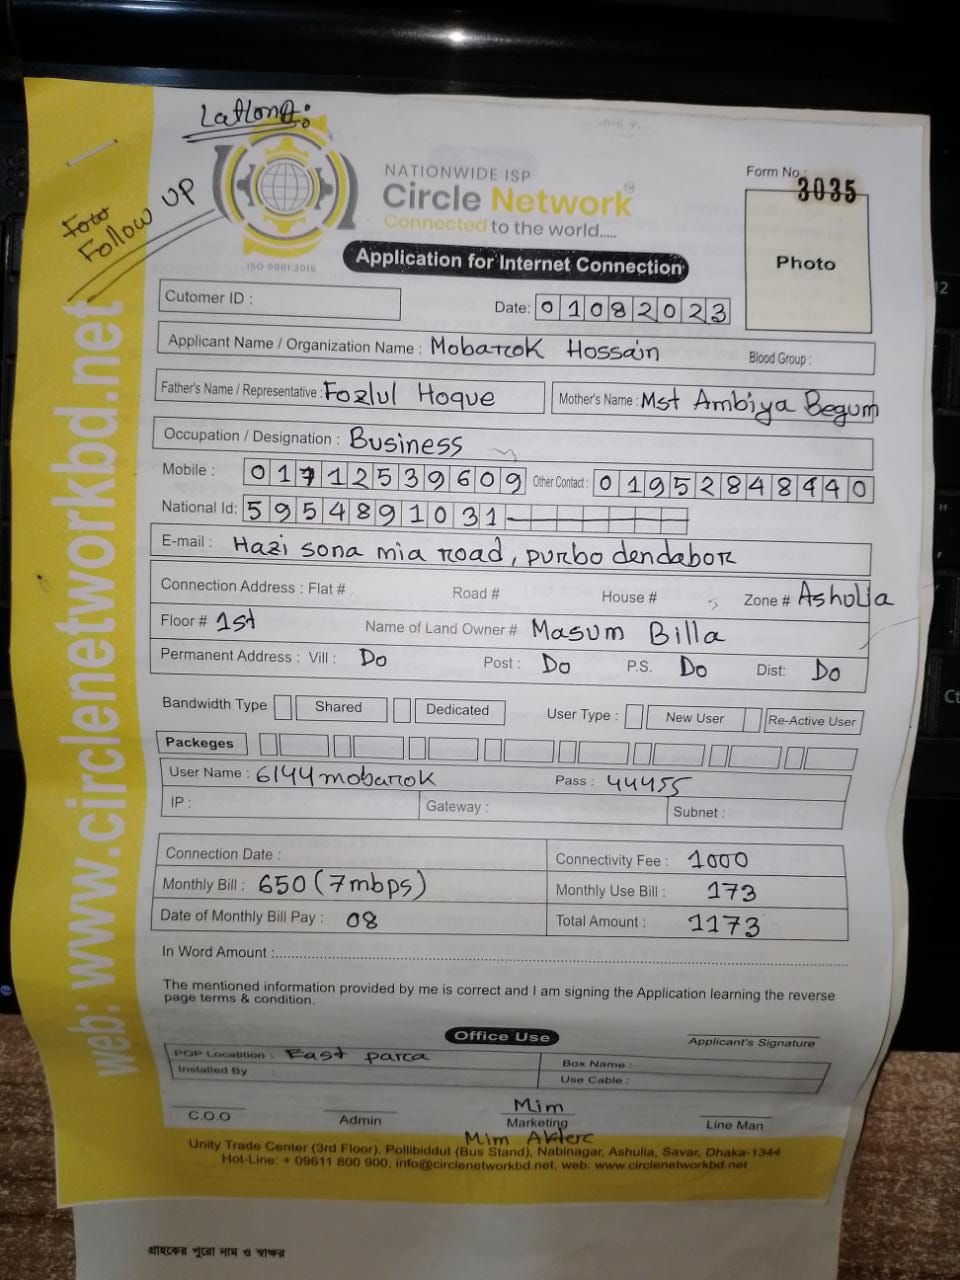 Latlong:
Follow UP
NATIONWIDE ISP
Circle Network
Connected to the world.....
ISO 9001:2015
Form No.: 3035
Photo
Application for Internet Connection
Cutomer ID :
Date: 01082023
Applicant Name / Organization Name : Mobarok Hossain Blood Group :
Father's Name / Representative : Fozlul Hoque Mother's Name : Mst Ambiya Begum
Occupation / Designation : Business
Mobile : 01712539609 Other Contact : 01952848440
National Id: 5954891031
E-mail : Hazi sona mia road, purbo dendabor
Connection Address : Flat # Road # House # Zone # Ashulia
Floor # 1st Name of Land Owner # Masum Billa
Permanent Address : Vill : Do Post : Do P.S. Do Dist: Do
Bandwidth Type Shared Dedicated User Type : New User Re-Active User
Packeges
User Name : 6144mobarok Pass : 44455
IP : Gateway : Subnet :
Connection Date : Connectivity Fee : 1000
Monthly Bill : 650 (7mbps) Monthly Use Bill : 173
Date of Monthly Bill Pay : 08 Total Amount : 1173
In Word Amount :
The mentioned information provided by me is correct and I am signing the Application learning the reverse
page terms & condition.
Office Use
Applicant's Signature
POP Locatition : East parca Box Name :
Installed By : Use Cable :
Mim
C.O.O Admin Marketing Line Man
Mim Akterc
Unity Trade Center (3rd Floor), Pollibiddut (Bus Stand), Nabinagar, Ashulia, Savar, Dhaka-1344
Hot-Line: + 09611 800 900, info@circlenetworkbd.net, web: www.circlenetworkbd.net
web: www.circlenetworkbd.net
গ্রাহকের পুরো নাম ও স্বাক্ষর